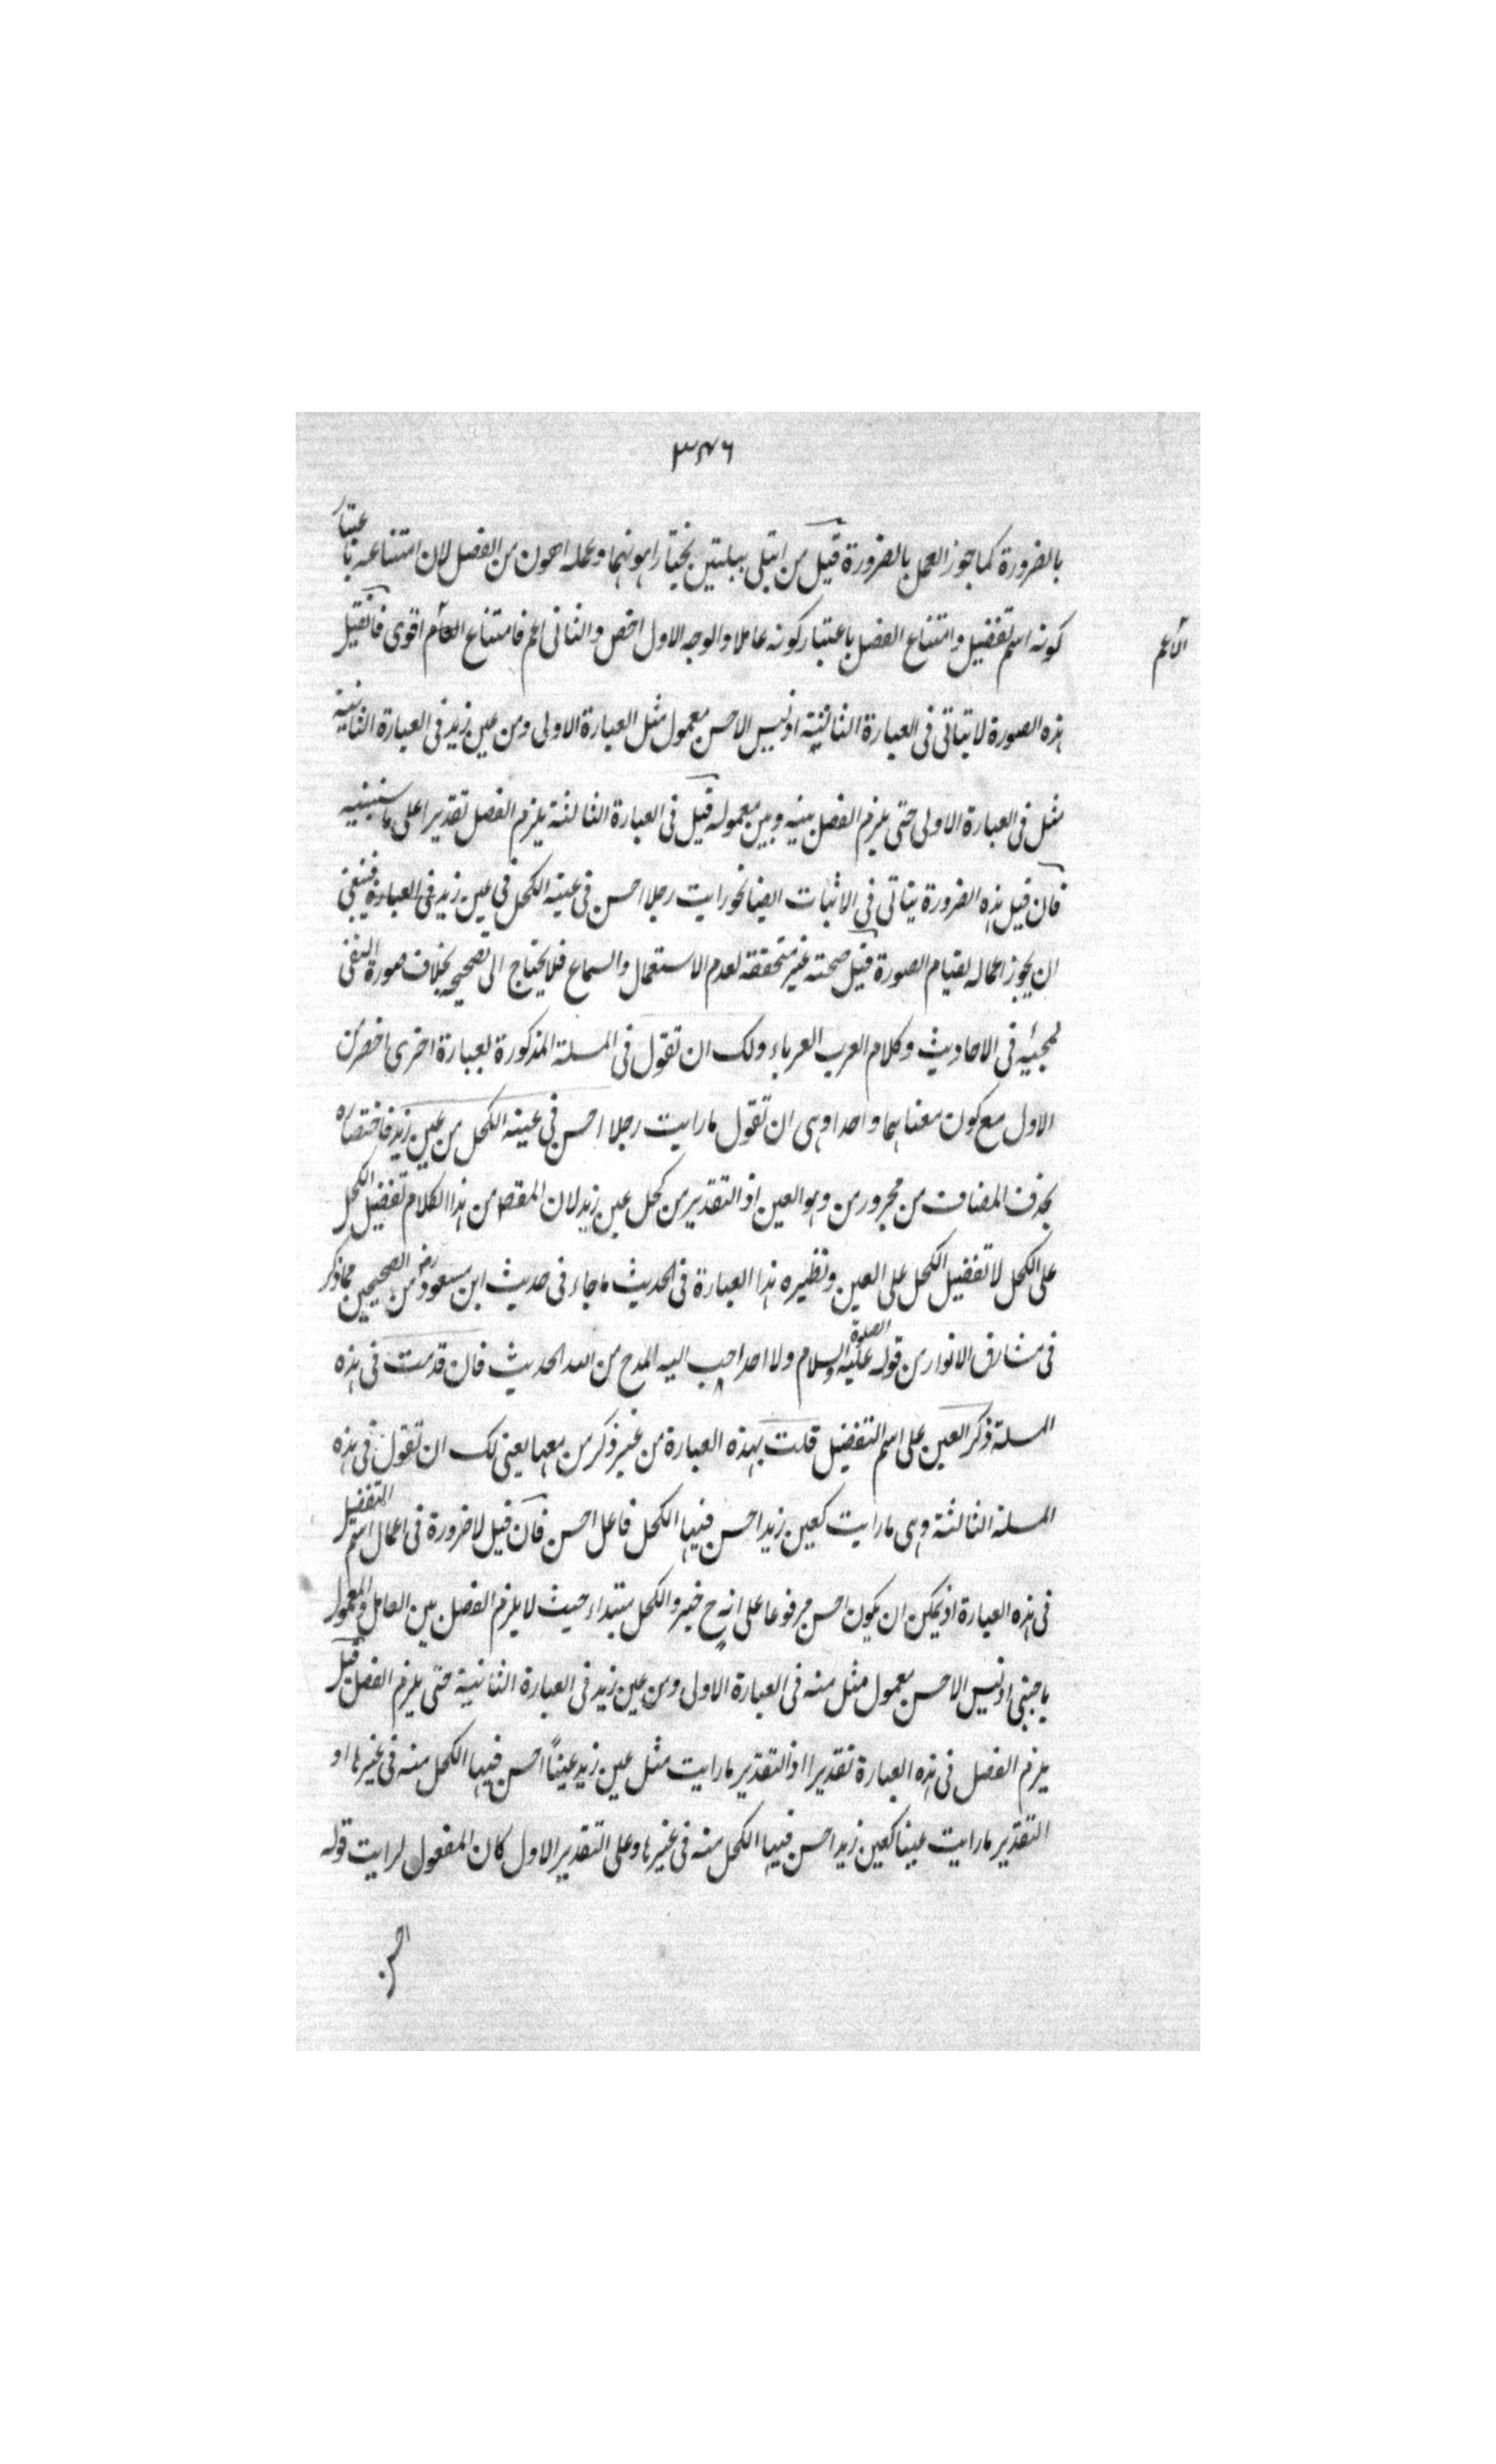 ٣٤٦
بالضرورة كما جوز العمل بالضرورة قيل من ابتلى ببليتين يختار اهونهما وعمله اهون من الفصل لان امتناعه باعتبار
كونه اسم تفضيل وامتناع الفصل باعتبار كونه عاملا والوجه الاول اخص والثاني اعم فامتناع العام اقوى فان قيل
الاعم
هذه الصورة لا يتاتى فى العبارة الثانية اذ ليس الاحسن معمول مثل العبارة الاولى ومن عين زيد فى العبارة الثانية
مثل فى العبارة الاولى حتى يلزم الفصل بينه وبين معموله قيل فى العبارة الثالثة يلزم الفصل تقديرا على ما سنبينه
فان قيل هذه الضرورة يتاتى فى الاثبات ايضا نحو رايت رجلا احسن فى عينه الكحل فى عين زيد فى العبارة فينبغى
ان يجوز اعماله لقيام الصورة قيل صحته غير متحققة لعدم الاستعمال والسماع فلا يحتاج الى تصحيحه بخلاف صورة النفى
لمجيئه فى الاحاديث وكلام العرب العرباء ولك ان تقول فى المسئلة المذكورة بعبارة اخرى اخصر من
الاول مع كون معناهما واحدا وهى ان تقول ما رايت رجلا احسن فى عينه الكحل من عين زيد فاختصاره
بحذف المضاف من مجرور من وهو العين اذ التقدير من كحل عين زيد لان المقصد من هذا الكلام تفضيل الكحل
على الكحل لا تفضيل الكحل على العين ونظيره هذا العبارة فى الحديث ما جاء فى حديث ابن مسعود رضـ من الصحيحين مما ذكر
فى مشارق الانوار من قوله عليه الصلوة والسلام ولا احد احب اليه المدح من الله الحديث فان قدمت فى هذه
المسئلة ذكر العين على اسم التفضيل قلت بهذه العبارة من غير ذكر من معها يعنى لك ان تقول فى هذه
المسئلة الثالثة وهى ما رايت كعين زيد احسن فيها الكحل فاعل احسن فان قيل لا ضرورة فى اعمال اسم التفضيل
فى هذه العبارة اذ يمكن ان يكون احسن مرفوعا على انه ح خبر والكحل مبتداء حيث لا يلزم الفصل بين العامل والمعمول
باجنبى اذ ليس الاحسن معمول مثل منه فى العبارة الاولى ومن عين زيد فى العبارة الثانية حتى يلزم الفصل قيل
يلزم الفصل فى هذه العبارة تقديرا اذ التقدير ما رايت مثل عين زيد عيناً احسن فيها الكحل منه فى غيرها او
التقدير ما رايت عينا كعين زيد احسن فيها الكحل منه فى غيرها وعلى التقدير الاول كان المفعول لرايت قوله
احسن